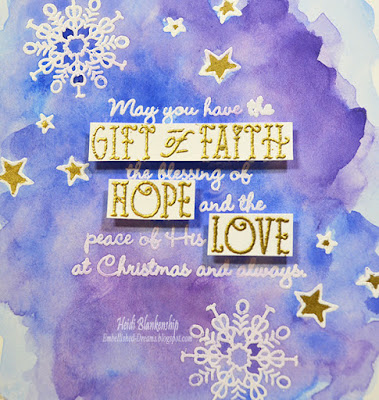 May you have the
GIFT OF FAITH
the blessing of
HOPE and the
peace of His LOVE
at Christmas and always.
Heidi Blankenship
Embellished-Dreams.blogspot.com